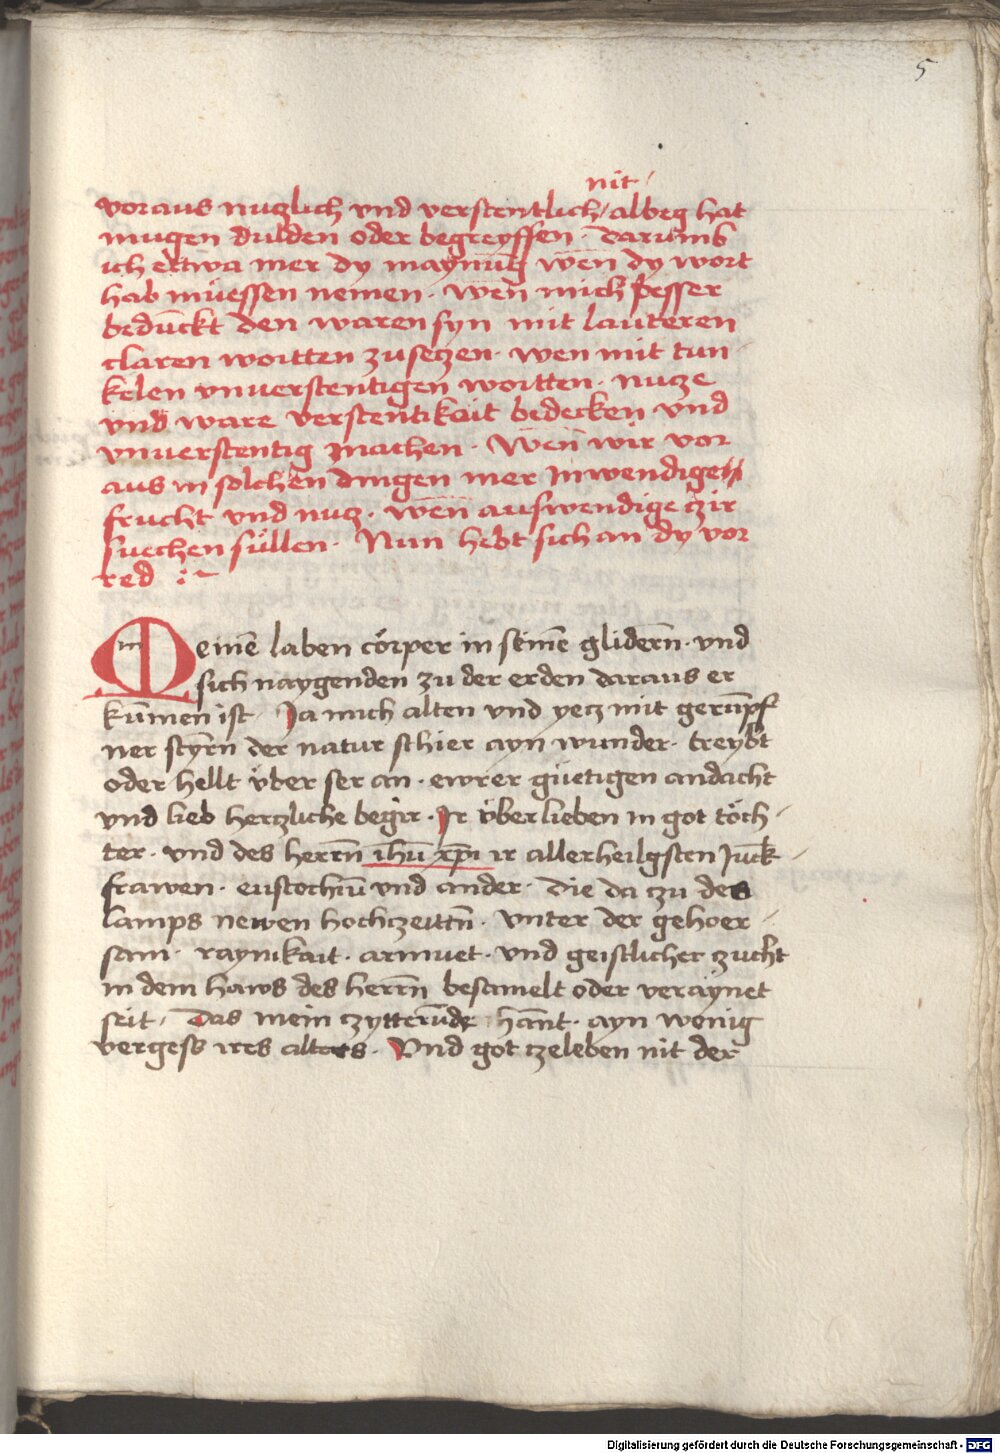 5
nit /
voraus nuczlich vnd verstentlich / albeg hat
mugen dulden oder begreyffen · Darumb
ich ettwa mer dy maynūg wen dy wort
hab müessen nemen · wen mich pesser
bedūckt den waren syn mit lauteren
claren wortten zu seczen · wen mit tun-
kelen vnuerstentigen wortten · nucze
vnd ware verstentikait bedecken vnd
vnuerstentig machen · Wen wir vor
aus in solchen dingen mer Inwendige
frucht vnd nucz · wen auswendige czir
suechen süllen · Nun hebt sich an dy vor
red :~
Meinē laben cörper in seinē glidern̄ · vnd
sich naygenden zu der erden daraus er
kūmen ist / Ja mich alten vnd yecz mit gerūpf
ner styrn̄ der natur schier ayn wunder · treybt
oder hellt vber ser an · ewrer güetigen andacht
vnd lieb herczliche begir · Ir vberlieben in got töch-
ter · vnd des herrn̄ ihū xp̄i ir allerheilgsten Juck-
frawen · eustochiū vnd ander · Die da czu des
lamps newen hochzeittn̄ · vnter der gehoer-
sam · raynikait · armuet · vnd geistlicher zucht
in dem haws des herrn̄ besamelt oder veraynet
seit / Das mein czytterūde hānt · ayn wenig
vergess ires alters · Vnd got czeleben nit der
Digitalisierung gefördert durch die Deutsche Forschungsgemeinschaft - DFG